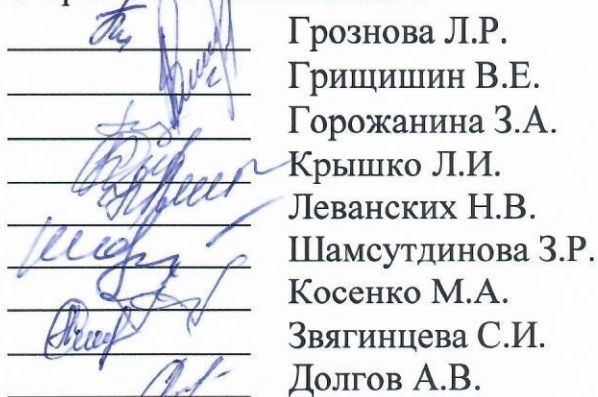 Грознова Л.Р.
Грищишин В.Е.
Горожанина З.А.
Крышко Л.И.
Леванских Н.В.
Шамсутдинова З.Р.
Косенко М.А.
Звягинцева С.И.
Долгов А.В.